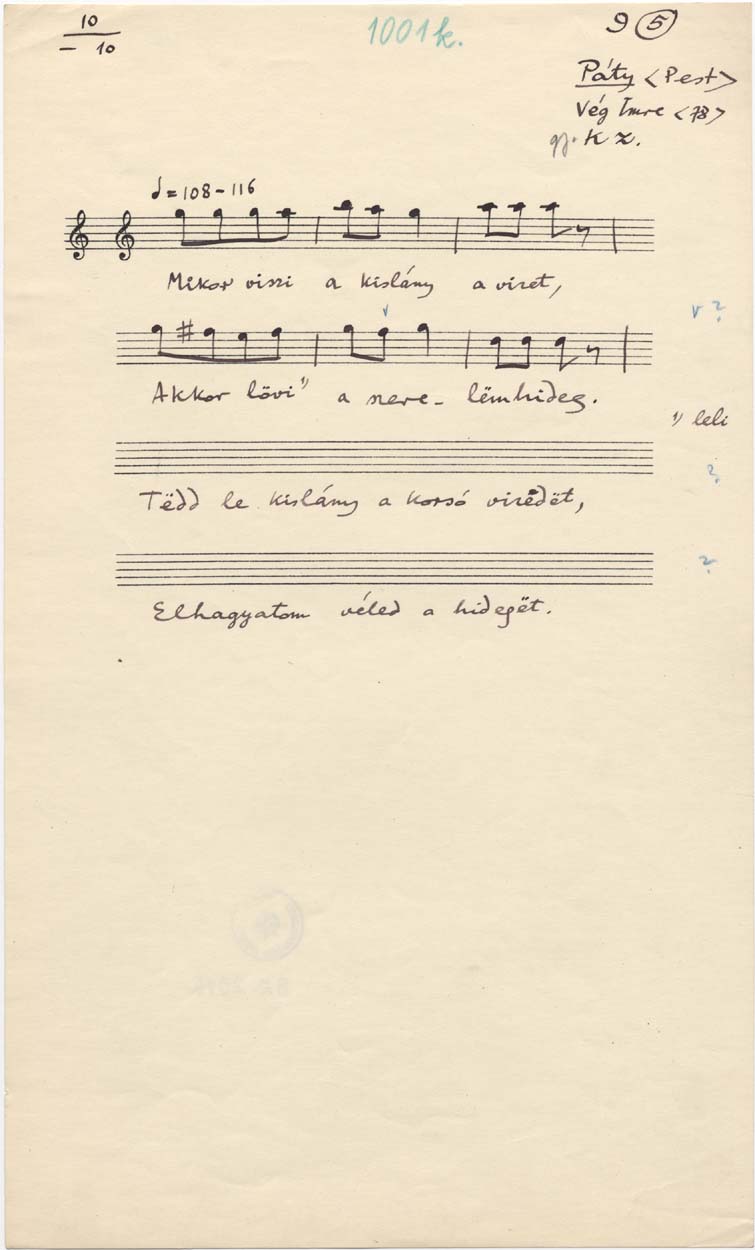 10
- 10
1001k.
9 5
Páty <Pest>
Vég Imre <78>
gy. K Z.
♩=108-116
Mikor viszi a kislány a vizet,
v ?
Akkor lövi 1) a szere- lëmhideg.
1) leli
?
Tëdd le kislány a korsó vizedët,
?
Elhagyatom véled a hidegët.